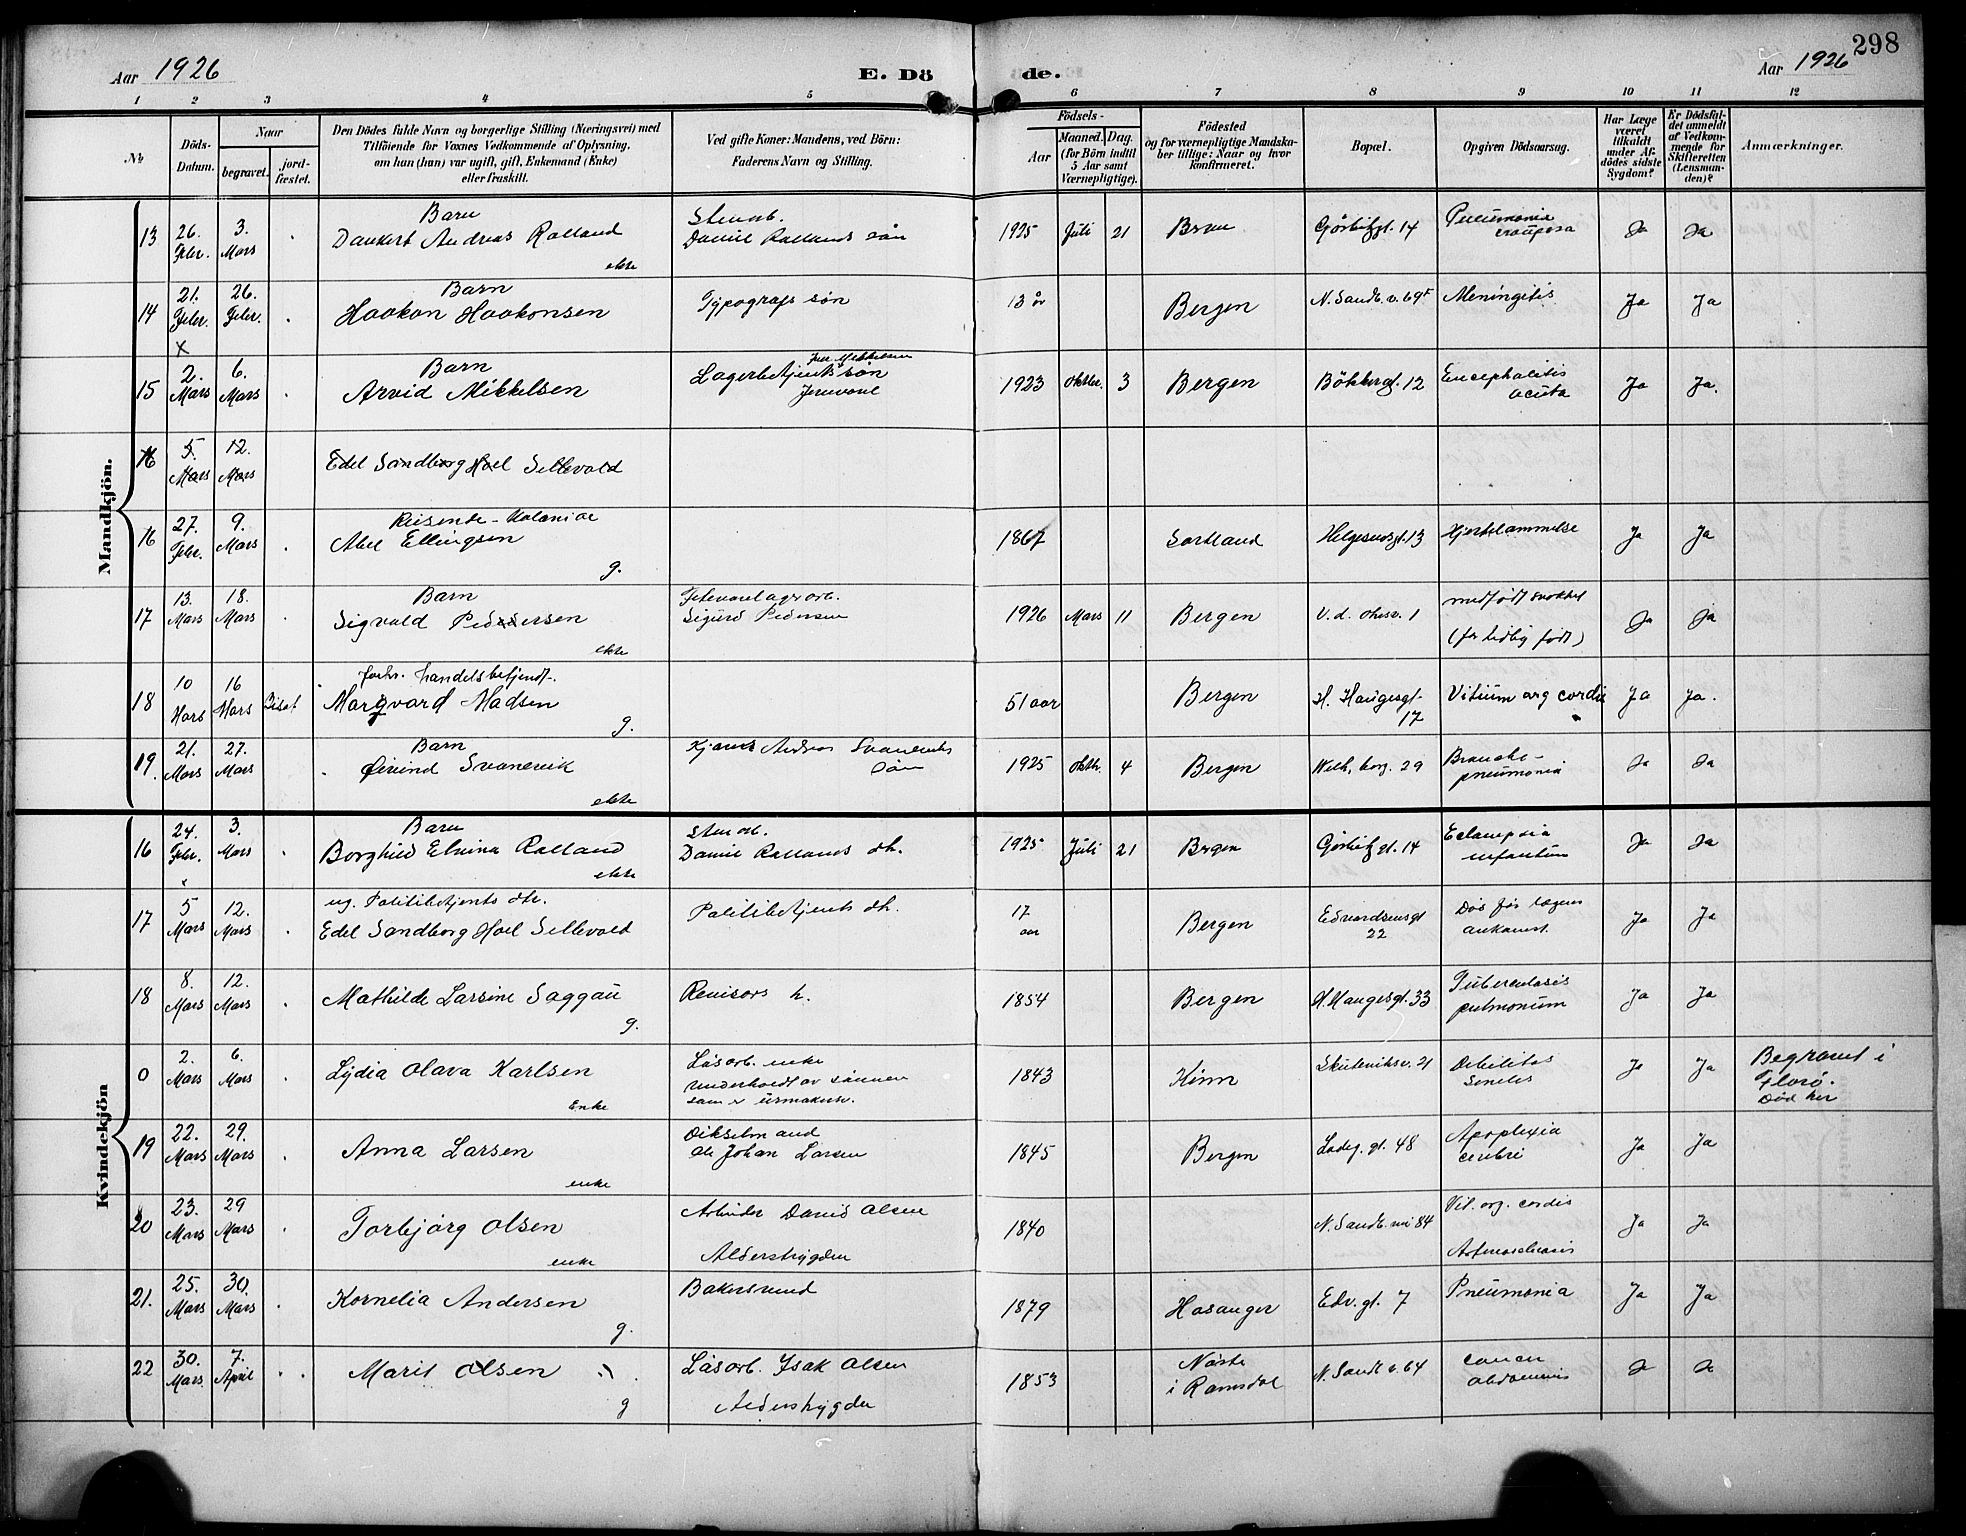 298
Aar 1926
E. Döde.
Aar 1926
1 2 3 4 5 6 7 8 9 10 11 12
No
Döds-Datum.
Naar
begravet.
jordfæstet.
Den Dödes fulde Navn og borgerlige Stilling (Næringsvei) med
Tilföiende for Voxnes Vedkommende af Oplysning,
om han (hun) var ugift, gift, Enkemand (Enke)
eller fraskilt.
Ved gifte Koner: Mandens, ved Börn:
Faderens Navn og Stilling.
Födsels-
Aar
Maaned.
Dag.
(for Börn indtil
5 Aar samt
Værnepligtige).
Födested
og for værnepligtige Mandska-
ber tillige: Naar og hvor
konfirmeret.
Bopæl.
Opgiven Dödsaarsag.
Har Læge
været
tilkaldt
under Af-
dödes sidste
Sygdom?
Er Dödsfal-
det anmeldt
af Vedkom-
mende for
Skifteretten
(Lensman-
den)?
Anmærkninger.
Mandkjön.
13 26. Febr. 3. Mars
Barn
Dankert Andreas Rolland
ekte
Stenarb.
Daniel Rollands søn
1925 Juli 21 Görbitzgt. 14
Pneumonia
crouposa
Ja Ja
14 21. Febr. 26. Febr.
x
Barn
Haakon Haakonsen
Typografs søn
13 år Bergen N. Sandv. v. 69F Meningitis Ja Ja
15 2. Mars 6. Mars
Barn
Arvid Mikkelsen
Lagerbetjents søn
1923 Oktbr. 3 Bergen Bökkergt. 12
Encephalitis
acuta
Ja Ja.
16 5. Mars 12. Mars
Edel Sandborg Hoel Sellevold
16 27. Febr. 9. Mars
Reisende-
Abel Ellingsen
g.
1867 Sortland Helgesensgt. 13 Hjertelammelse Ja Ja
17 13. Mars 18. Mars
Barn
Sigvald Pedersen
ekte
Sigurd Pedersen
1926 Mars 11 Bergen 1
medfødt svakhet
(for tidlig født)
Ja Ja
18 10 Mars 16 Mars Bisat
forhv. handelsbetjendt.
Marqvard Madsen
g.
51 aar Bergen
H. Haugesgt-
17
Vitium org cordis
Ja Ja.
19. 21. Mars 27. Mars
Barn
Øivind Svanevik
ekte
Andreas Svaneviks
søn
1925 Oktbr. 4 Bergen 29
Broncho-
pneumonia
Ja Ja
Kvindekjön
16 24. Febr. 3. Mars
Barn
Borghild Elvina Rolland
ekte
Stenarb.
Daniel Rollands dtr.
1925 Juli 21 Bergen Görbitzgt. 14
Eclampsia
infantum
Ja Ja
17 5 Mars 12. Mars
ug. Politibetjents dtr.
Edel Sandborg Hoel Sellevold
Politibetjents dtr.
17
aar
Bergen
Edvardsensgt
22
Død før lægens
ankomst.
Ja Ja
18 8. Mars 12. Mars
Mathilde Larsine Saggau
g.
Revisors h.
1854 Bergen H. Haugesgt. 33
Tuberculosis
pulmonum
Ja Ja
0 2. Mars 6. Mars
Lydia Olava Karlsen
Enke
Løsarb. enke
underholdt av sønnen
som er urmaker.
1843 Kinn Skuteviksv. 21
Debilitas
senilis
Ja Ja
Begravet i
Florø.
Død her
19 22. Mars 29. Mars
Anna Larsen
enke
Johan Larsen
1845 Bergen Ladeg. gt. 48
Apoplexia
cerebri
Ja Ja
20 23. Mars 29 Mars
Torbjørg Olsen
enke
Arbeider David Olsen
Alderstrygden
1840 84
Vit. org. cordis
Ja Ja
21. 25. Mars 30. Mars
Kornelia Andersen
g.
Bakersvend
1879 Hosanger Edv. gt. 7 Pneumonia Ja Ja
22 30. Mars. 7. April
Marit Olsen
g
Løsarb. Isak Olsen
Alderstrygden
1853
i Romsdal
N. Sandv. v. 64
Cancer
abdominis
Ja Ja